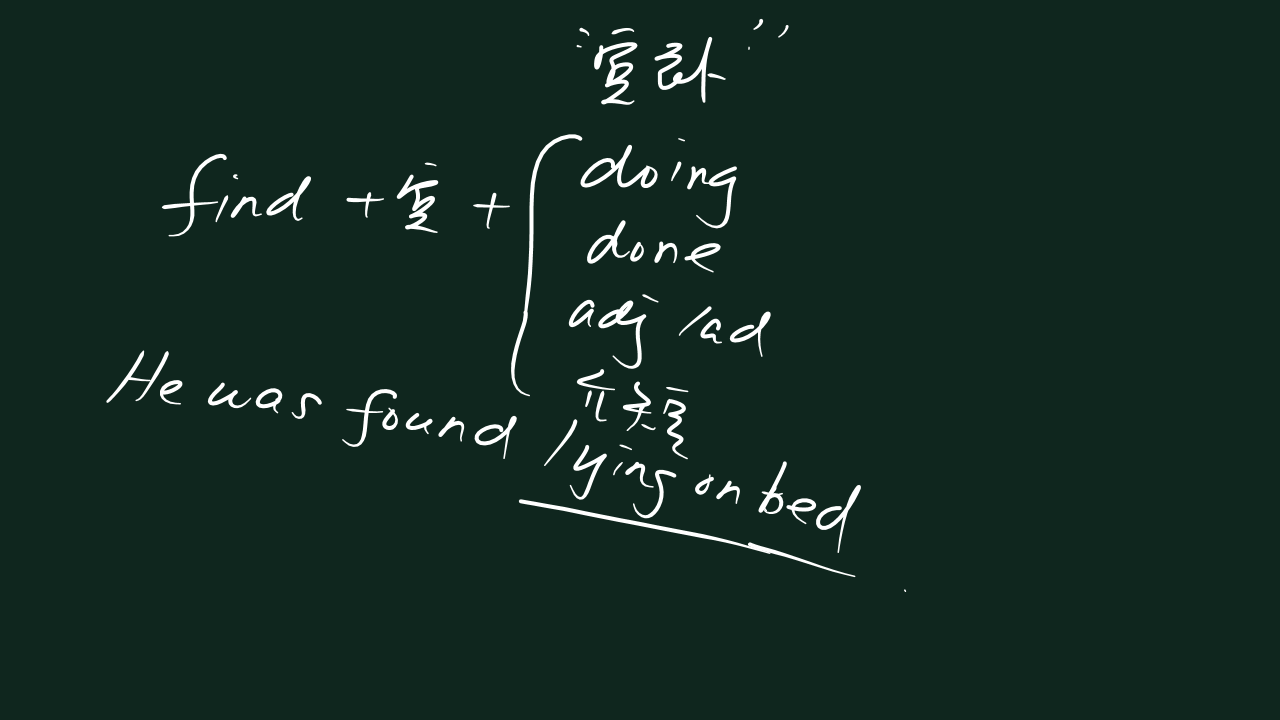 "宾补"
find + 宾 + { doing
done
adj / ad
介短
He was found lying on bed